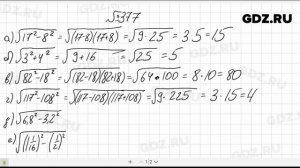 GDZ.RU
№377
а) √17²-8² = √(17-8)(17+8) = √9·25 = 3·5=15
б) √3²+4² = √9+16 = √25 = 5
в) √82²-18² = √(82-18)(82+18) = √64·100 = 8·10=80
г) √117²-108² = √(117-108)(117+108) = √9·225 = 3·15=4
д) √6,8²-3,2²
е) √(1 1/16)²-(1/2)²
- 1/2 +
GDZ.RU